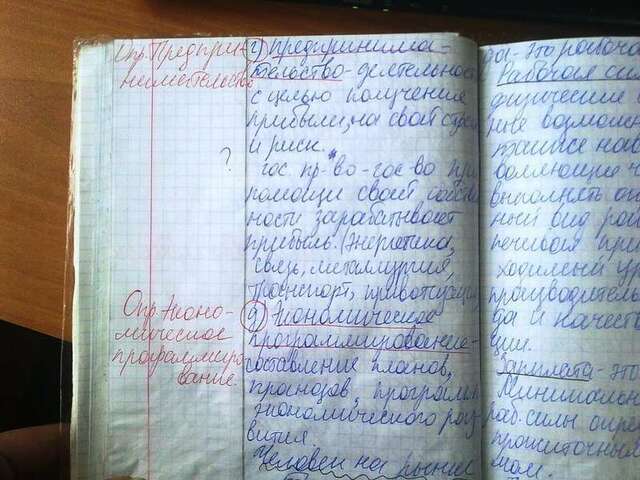 Опр. Предприни
нимательство
?
Опр. Эконо-
мическое
программиро-
вание.
2) Предпринима-
тельство - деятельнос
с целью получения
прибыли, на свой
и риск.
гос. пр-во - гос-во при
помощи своей собстве
ности зарабатывает
прибыль. (Энергетика,
связь, металлургия,
транспорт,
9) Экономическое
программирование -
составление планов,
прогнозов, программ
экономического раз
вития.
Человек на рынке
это рабоч
Рабочая си
физические
возможн
выполнять
ный вид
ходимый
производител
и качест
ции.
Зарплата - это
Минимально
раб. силы опре
прожиточным
мом.